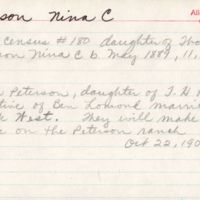 son Nina C
Census #180 daughter of Tho
son Nina C b. May 1889, 11,
Peterson, daughter of T. H
tive of Ben Lomond married
West. They will make
e on the Peterson ranch
Oct 22, 190